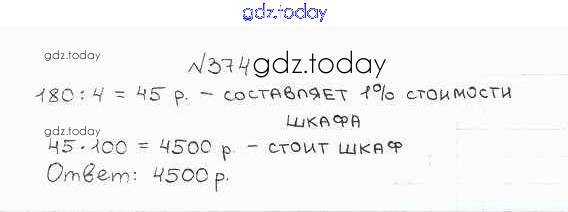 gdz.today
gdz.today
№374 gdz.today
180 : 4 = 45 р. – составляет 1% стоимости
шкафа
gdz.today
45 · 100 = 4500 р – стоит шкаф
Ответ: 4500 р.